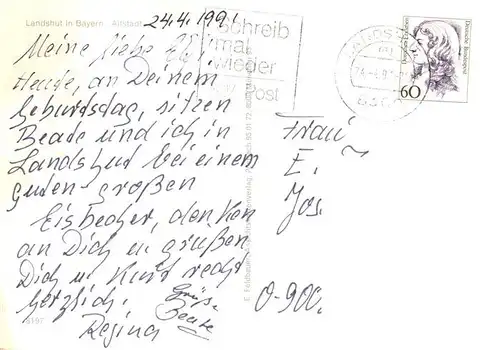 Landshut in Bayern - Altstadt
24.4.1991
Schreib
mal
wieder
Post
Deutsche Bundespost
60
Meine liebe
Heute, an Deinem
Geburtstag, sitzen
Beate und ich in
Landshut bei einem
guten großen
Eisbecher, denken
an Dich u. grüßen
Dich u. Kurt recht
herzlich.
Regina
Beate
Frau
E.
Jos.
O-900.
8197